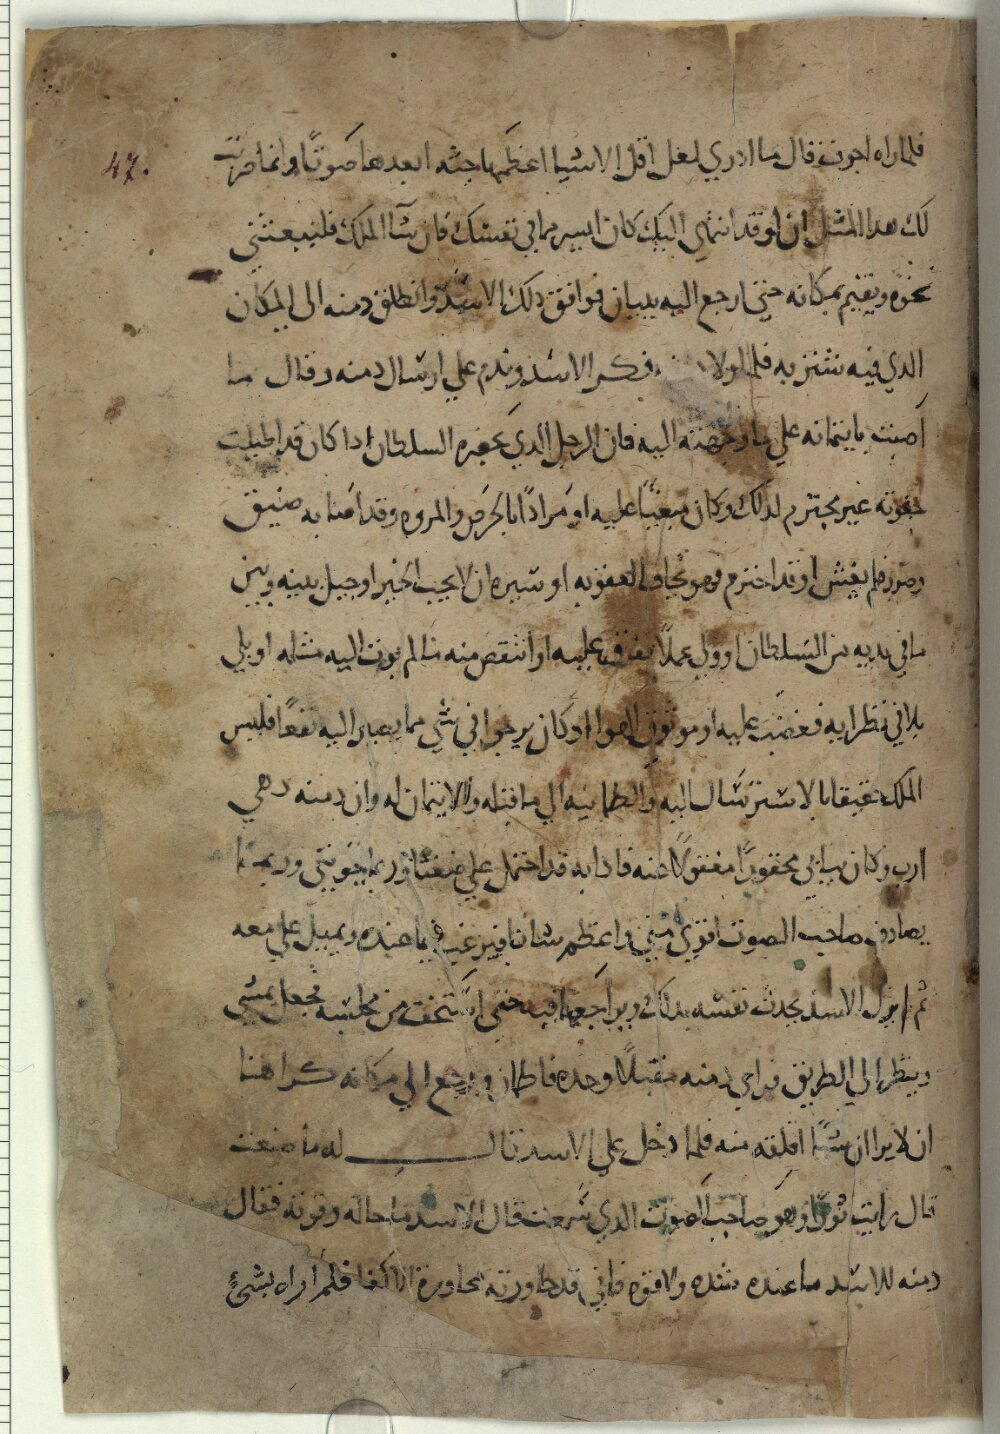 47.
فلما راه اجوف قال ما ادري لعل اقل الاشيا اعظمها جثه ابعدها صوتا وانما ضربت
لك هدا المثل ان لو قد انتهي اليك كان ايسر مما في نفسك فان شآ الملك فليبعثني
نحوه ويقيم بمكانه حتي ارجع اليه ببيان فوافق دلك الاسد وانطلق دمنه الى المكان
الدي فيه شنزبه فلما ولا فكر الاسد وندم علي ارسال دمنه وقال ما
اصبت بايتمانه علي ما وجهته اليه فان الرجل الدي يحضره السلطان ادا كان قد اطيلت
جفوته غير مجترم لدلك وكان مبغيا عليه او مرادا بالحرص والمروه وقد اصابه ضيق
وضرر فلم يعش او قد اجترم وهو يخاف العقوبه او شيره ان لا يحب الخير او حيل بينه وبين
ما في يديه من السلطان او ولي عملا ففرق عليه او انتقص منه مالم يوت اليه مثله او بلي
بلا في نظرايه فغضب عليه او موثوق الهوا او كان يرجوا في شي مما يصير اليه نفعا فليس
الملك حقيقا بالاسترسال اليه والطمانينه الي ما قبله والايتمان له وان دمنه دهي
ارب وكان ببابي محقورا مغفولا عنه فلدا به قد احتمل علي ضغنا وربما خونني وربما
يصادف صاحب الصوت اقوي مني واعظم شانا فيرغب فيما عنده ويميل علي معه
ثم لم يزل الاسد يحدث نفسه بدلك ويراجعها فيه حتي استخف من مجلسه فجعل يمشي
وينظر الي الطريق فراي دمنه مقبلا وحده فاطمان ورجع الي مكانه كراهنا
ان لا يرا ان شيا اقلقه منه فلما دخل علي الاسد قال له ما صنعت
قال رايت ثورا وهو صاحب الصوت الدي سمعت قال الاسد ما حاله وقوته فقال
دمنه للاسد ما عنده شده ولا قوه فاني قد حاورته محاورة الاكفا فلم اراه بشئ